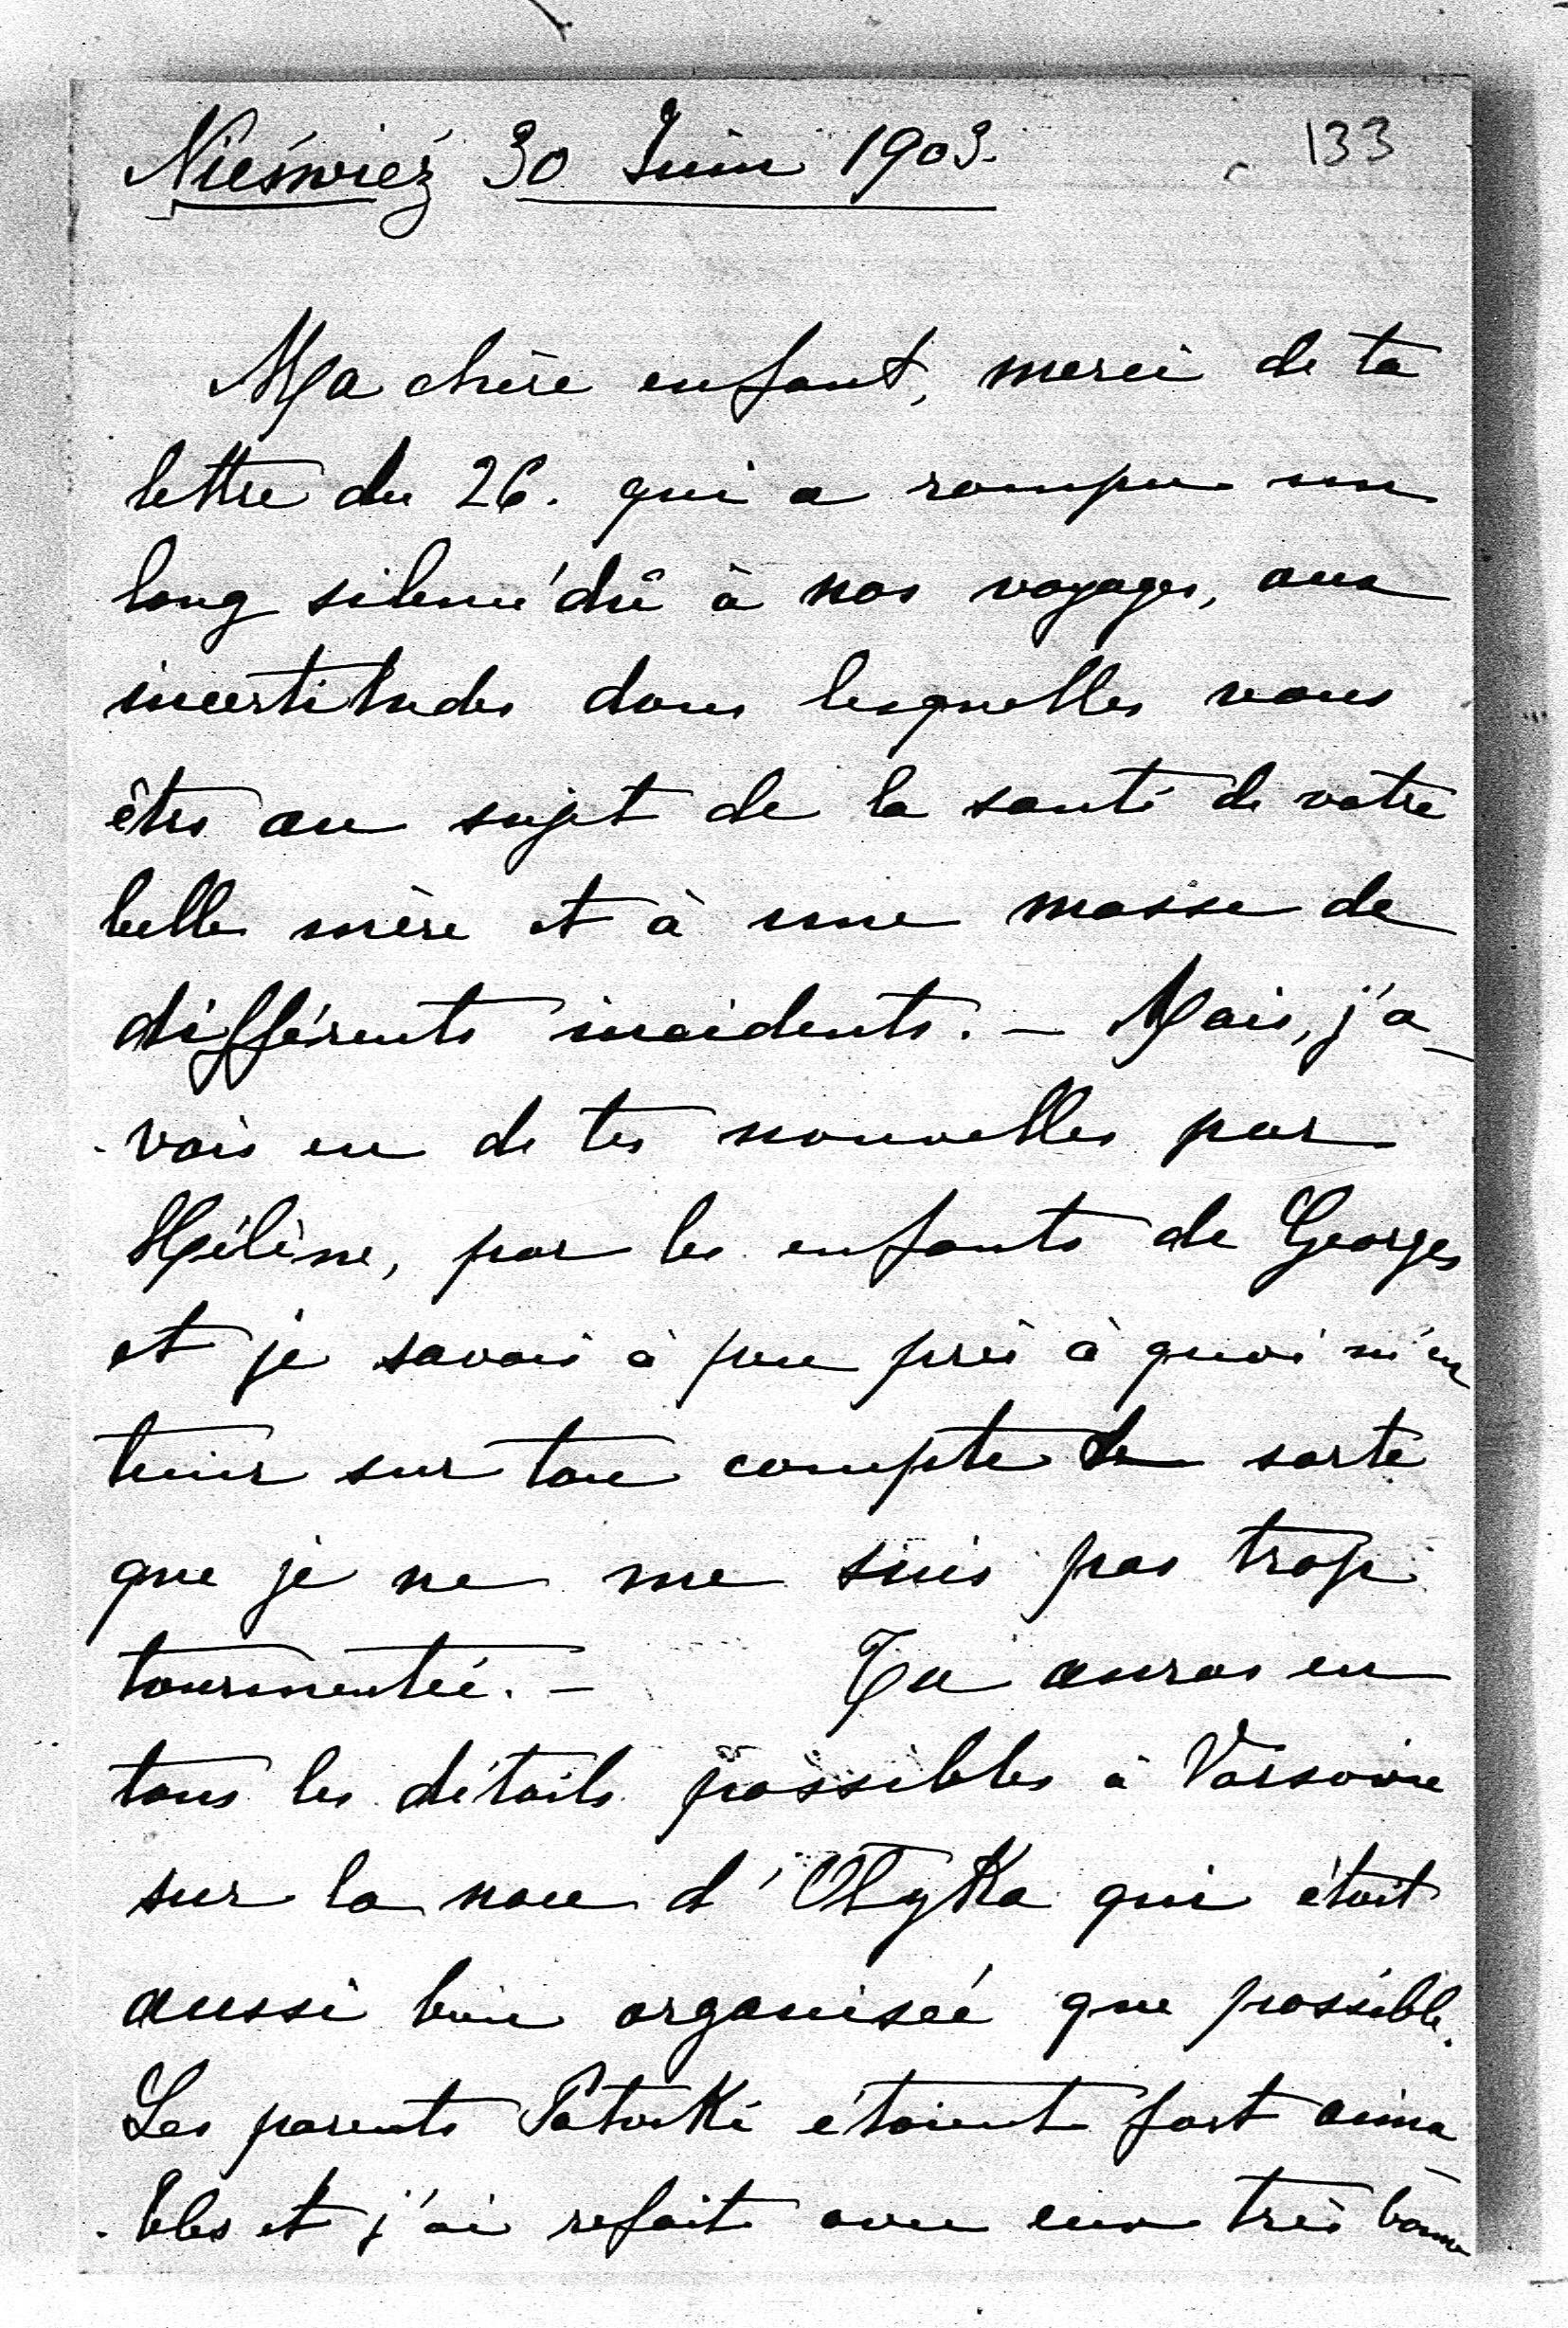 Nieśwież 30 Juin 1903.
133
Ma chère enfant, merci de ta
lettre du 26. qui a rompu un
long silence dû à nos voyages, aux
incertitudes dans lesquelles vous
êtes au sujet de la santé de votre
belle mère et à une masse de
différents incidents. – Mais, j'a-
vais eu de tes nouvelles par
Hélène, par les enfants de Georges
et je savais à peu près à quoi m'en
tenir sur ton compte de sorte
que je ne me suis pas trop
tourmentée. – Tu auras eu
tous les détails possibles à Varsovie
sur la noce d'Olyka qui était
aussi bien organisée que possible.
Les parents Potocki étaient fort aima
bles et j'ai refait avec eux très bonne